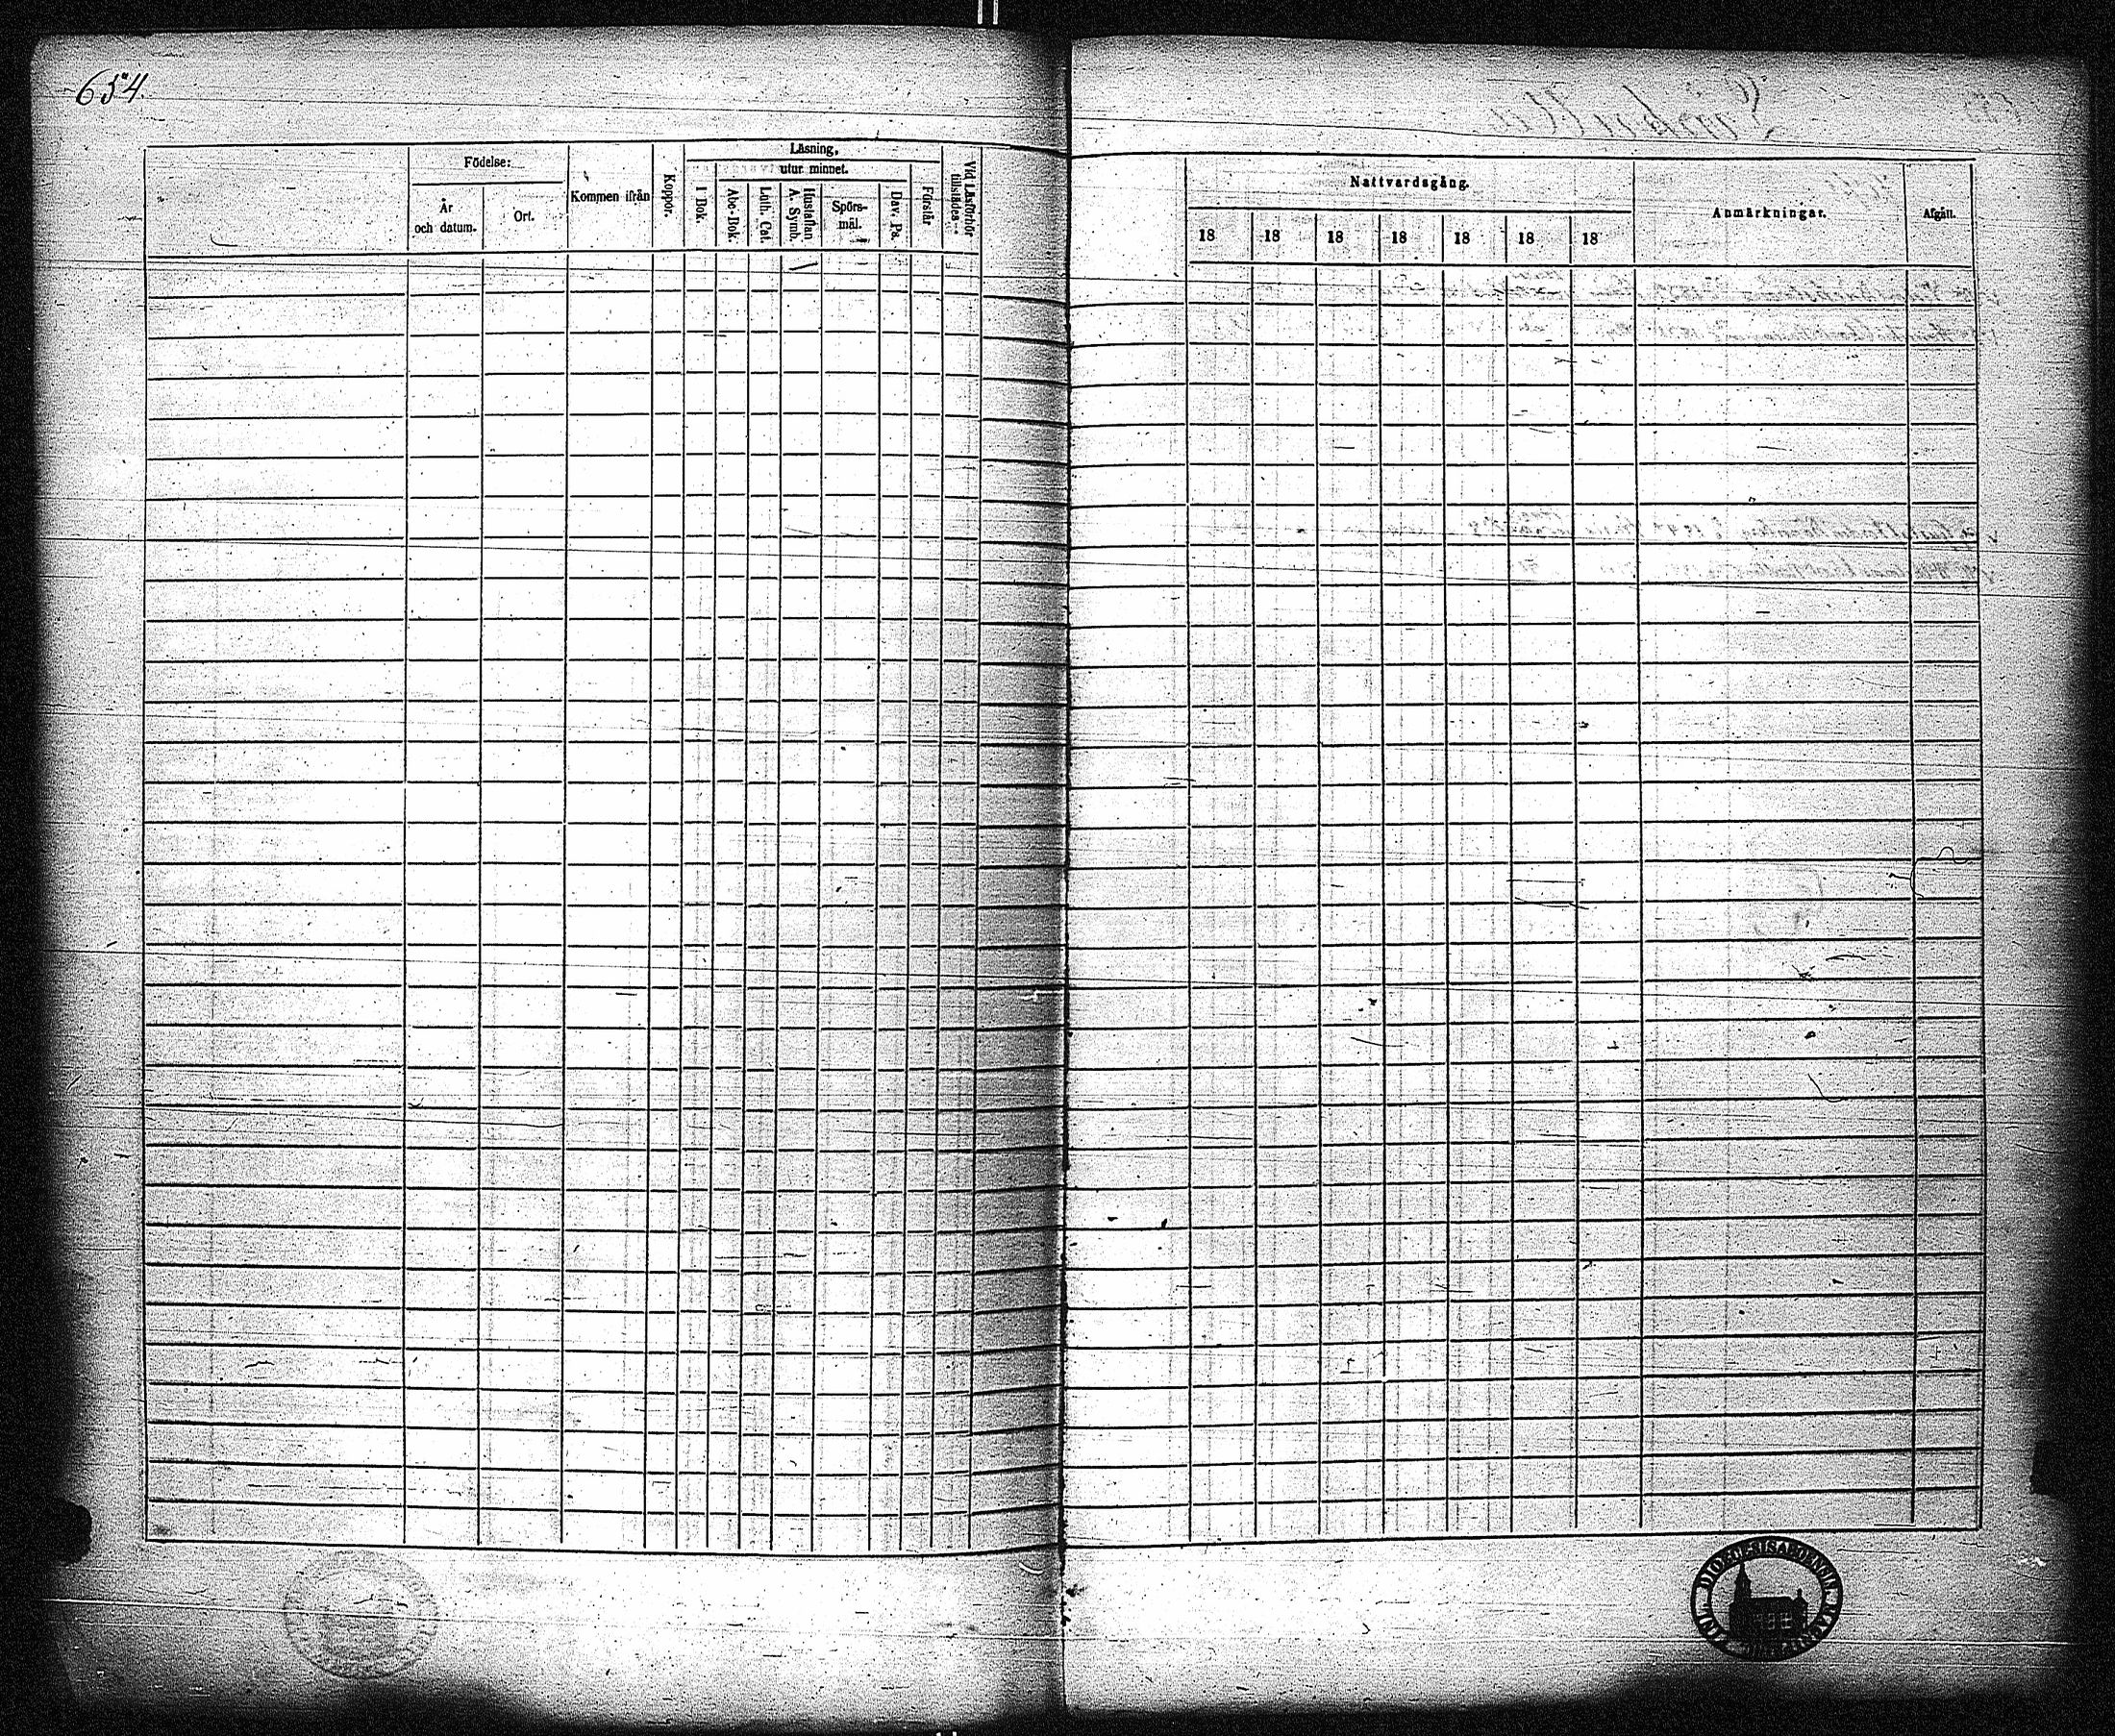 654.
Födelse:
År
och datum.
Ort.
Kommen ifrån
Koppor.
Läsning,
utur minnet.
I Bok.
Abc-Bok.
Luth. Cat.
Hustaflan
A. Symb.
Spörs-
mål.
Dav. Ps.
Förstår
Vid Läsförhör
tillstädes
Nattvardsgång.
18 18 18 18 18 18 18
Anmärkningar.
Afgått.